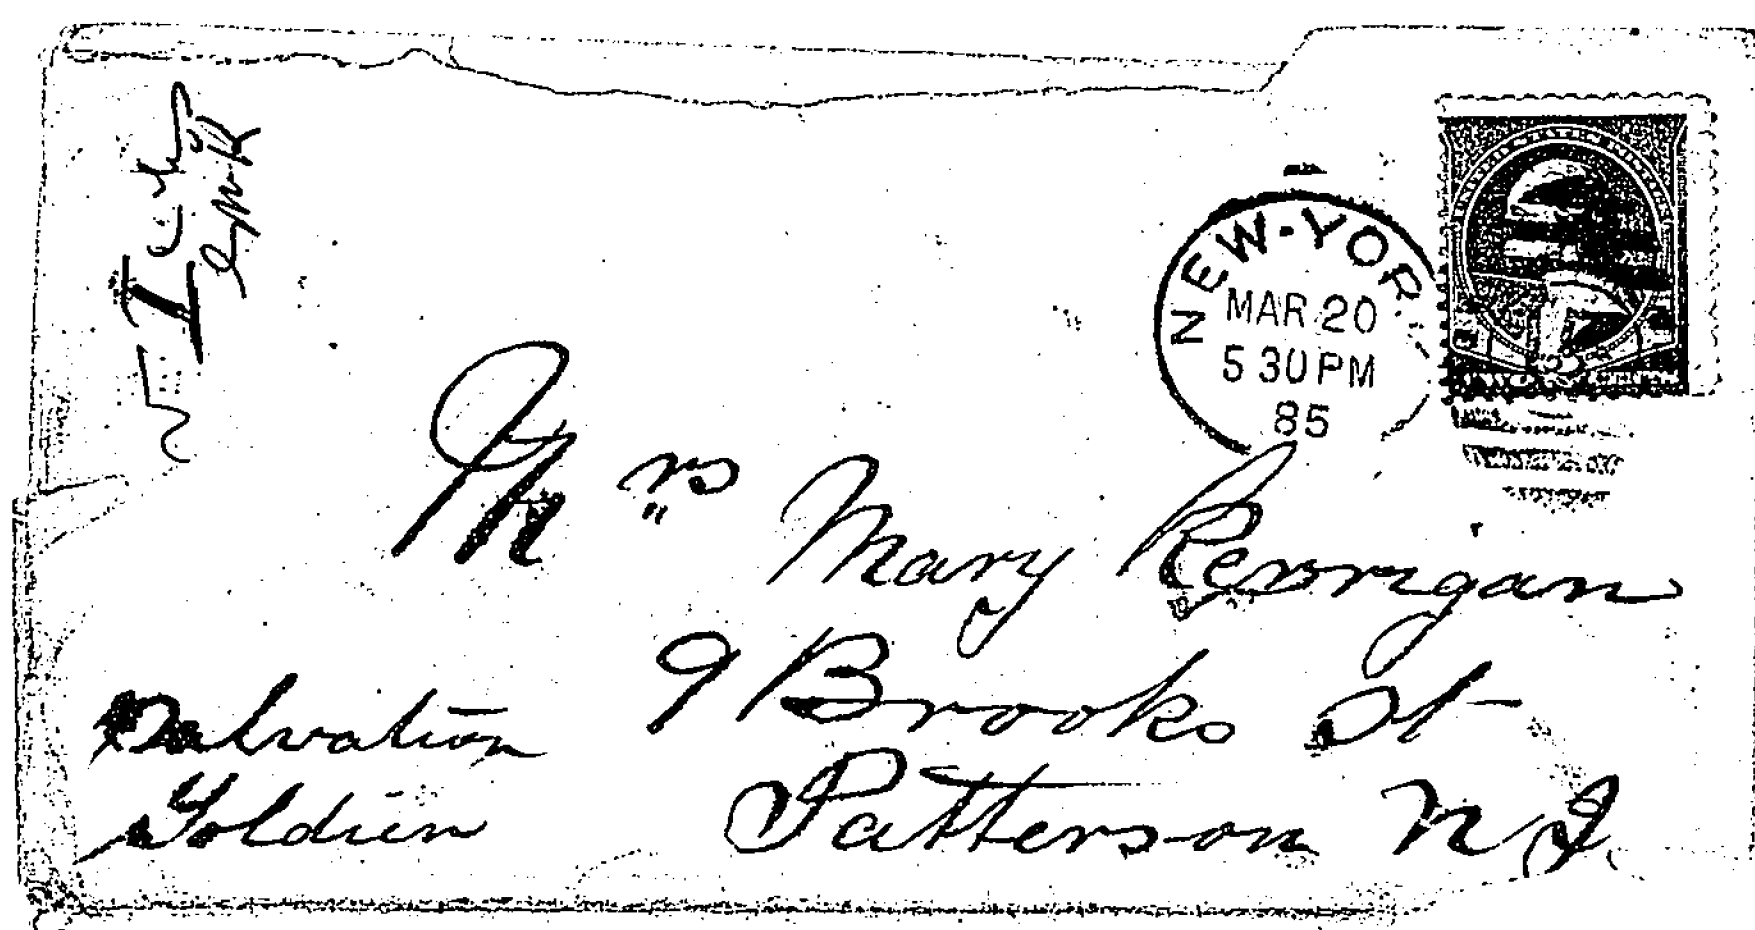 NEW-YORK
MAR 20
5 30 PM
85
Mrs Mary Kerrigan
9 Brooks St
Patterson N J.
Salvation
Soldier